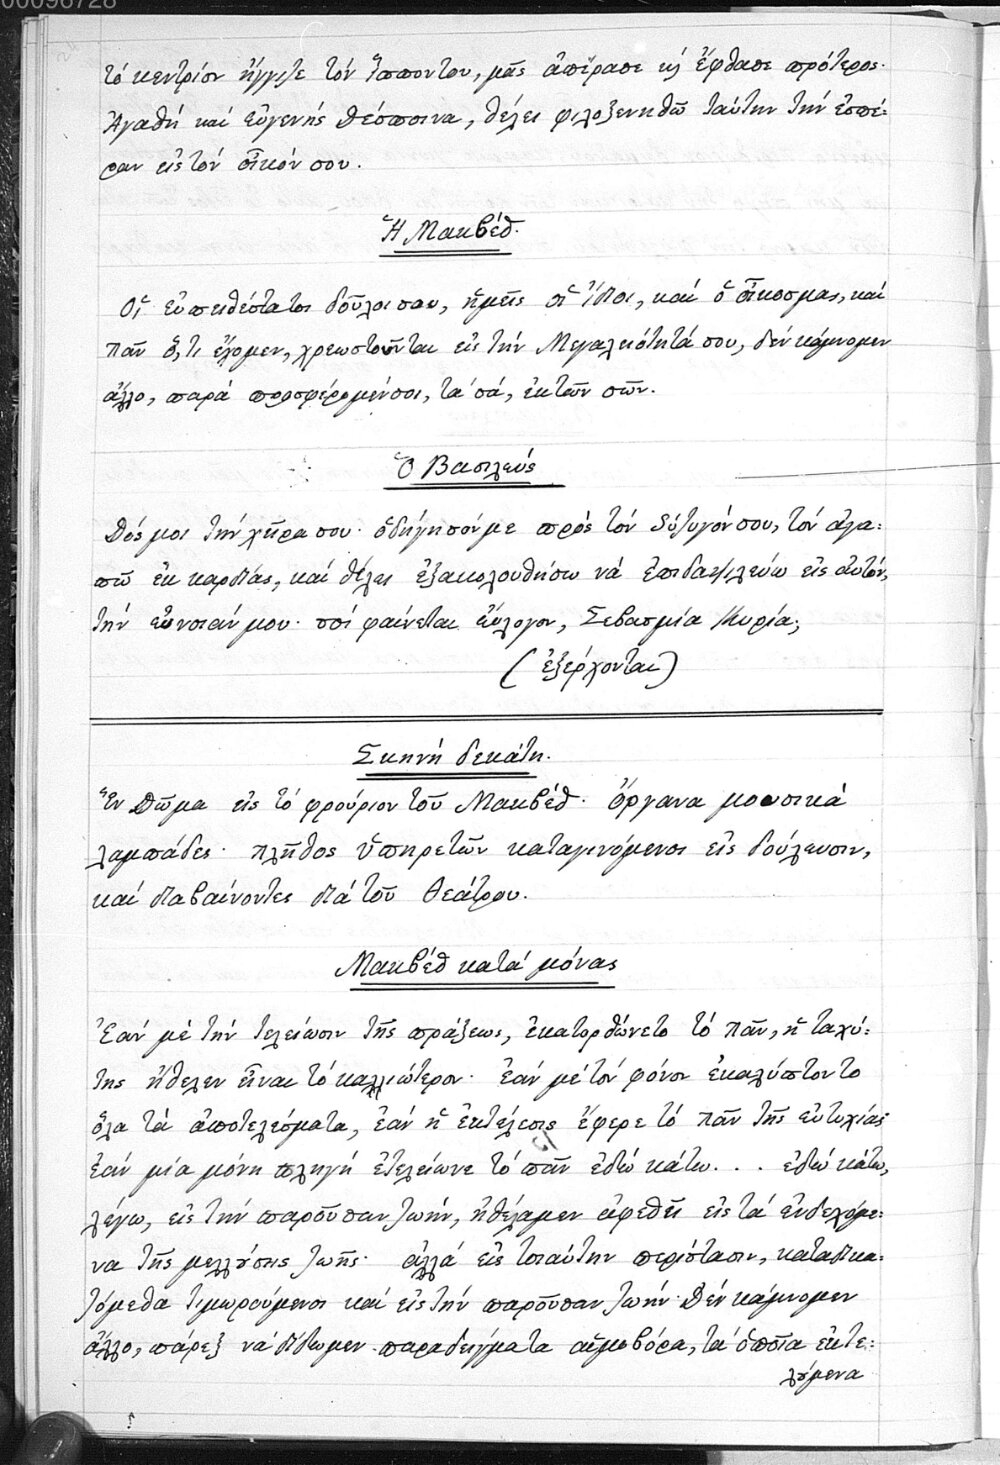 00096728
τὸ κεντρίον ἤγγιζε τὸν ἵππον του, μᾶς ἀπέρασε κ' ἔφθασε πρότερος.
Ἀγαθὴ καὶ εὐγενὴς Δέσποινα, θέλει φιλοξενηθῶ ταύτην τὴν ἑσπέ-
ραν εἰς τὸν οἶκόν σου.
Ἡ Μακβέθ.
Οἱ εὐπειθέστατοι δοῦλοι σου, ἡμεῖς οἱ ἴδιοι, καὶ ὁ οἶκος μας, καὶ
πᾶν ὅ,τι ἔχομεν, χρεωστοῦνται εἰς τὴν Μεγαλειότητά σου, δὲν κάμνομεν
ἄλλο, παρὰ προσφέρομέν σοι, τὰ σά, ἐκ τῶν σῶν.
Ὁ Βασιλεύς
Δός μοι τὴν χεῖρα σου· ὁδήγησόν με πρὸς τὸν σύζυγόν σου, τὸν ἀγα-
πῶ ἐκ καρδίας, καὶ θέλει ἐξακολουθήσω νὰ ἐπιδαψιλεύω εἰς αὐτόν,
τὴν εὔνοιάν μου· σοὶ φαίνεται εὔλογον, Σεβασμία Κυρία;
(ἐξέρχονται)
Σκηνὴ δεκάτη.
Ἓν Δῶμα εἰς τὸ φρούριον τοῦ Μακβέθ· ὄργανα μουσικὰ
λαμπάδες· πλῆθος ὑπηρετῶν καταγινόμενοι εἰς δούλευσιν,
καὶ διαβαίνοντες διὰ τοῦ θεάτρου.
Μακβέθ κατὰ μόνας
Ἐὰν μὲ τὴν τελείωσιν τῆς πράξεως, ἐκατορθώνετο τὸ πᾶν, ἡ ταχύ-
της ἤθελεν εἶναι τὸ καλλιώτερον· ἐὰν μὲ τὸν φόνον ἐκαλύπτοντο
ὅλα τὰ ἀποτελέσματα, ἐὰν ἡ ἐκτέλεσις ἔφερε τὸ πᾶν τῆς εὐτυχίας
ἐὰν μία μόνη πληγὴ ἐτελείωνε τὸ πᾶν ἐδῶ κάτω... ἐδῶ κάτω,
λέγω, εἰς τὴν παροῦσαν ζωήν, ἠθέλαμεν ἀφεθῆ εἰς τὰ ἐνδεχόμε-
να τῆς μελλούσης ζωῆς· ἀλλὰ εἰς τοιαύτην περίστασιν, καταδικα-
ζόμεθα τιμωρούμενοι καὶ εἰς τὴν παροῦσαν ζωήν· Δὲν κάμνομεν
ἄλλο, πάρεξ νὰ δίδωμεν παραδείγματα αἱμοβόρα, τὰ ὁποῖα ἐκτε-
λούμενα